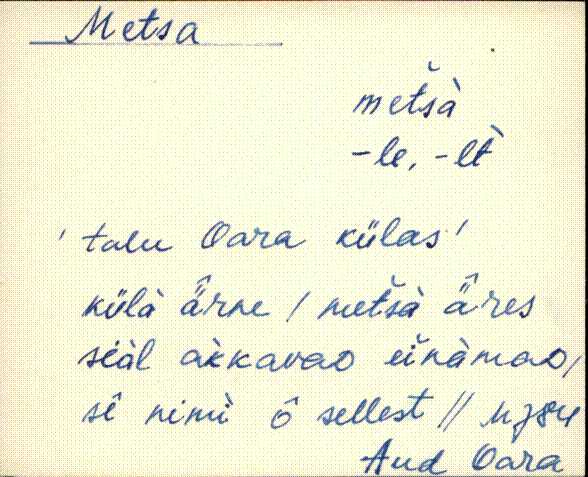 Metsa
metšà
-le, -lt̀
' talu Oara külas '
külà ä̂rne / metšà ä̂res
siàl àkkavao eǐnàmao,
sê nimì ô sellest //
Aud Oara